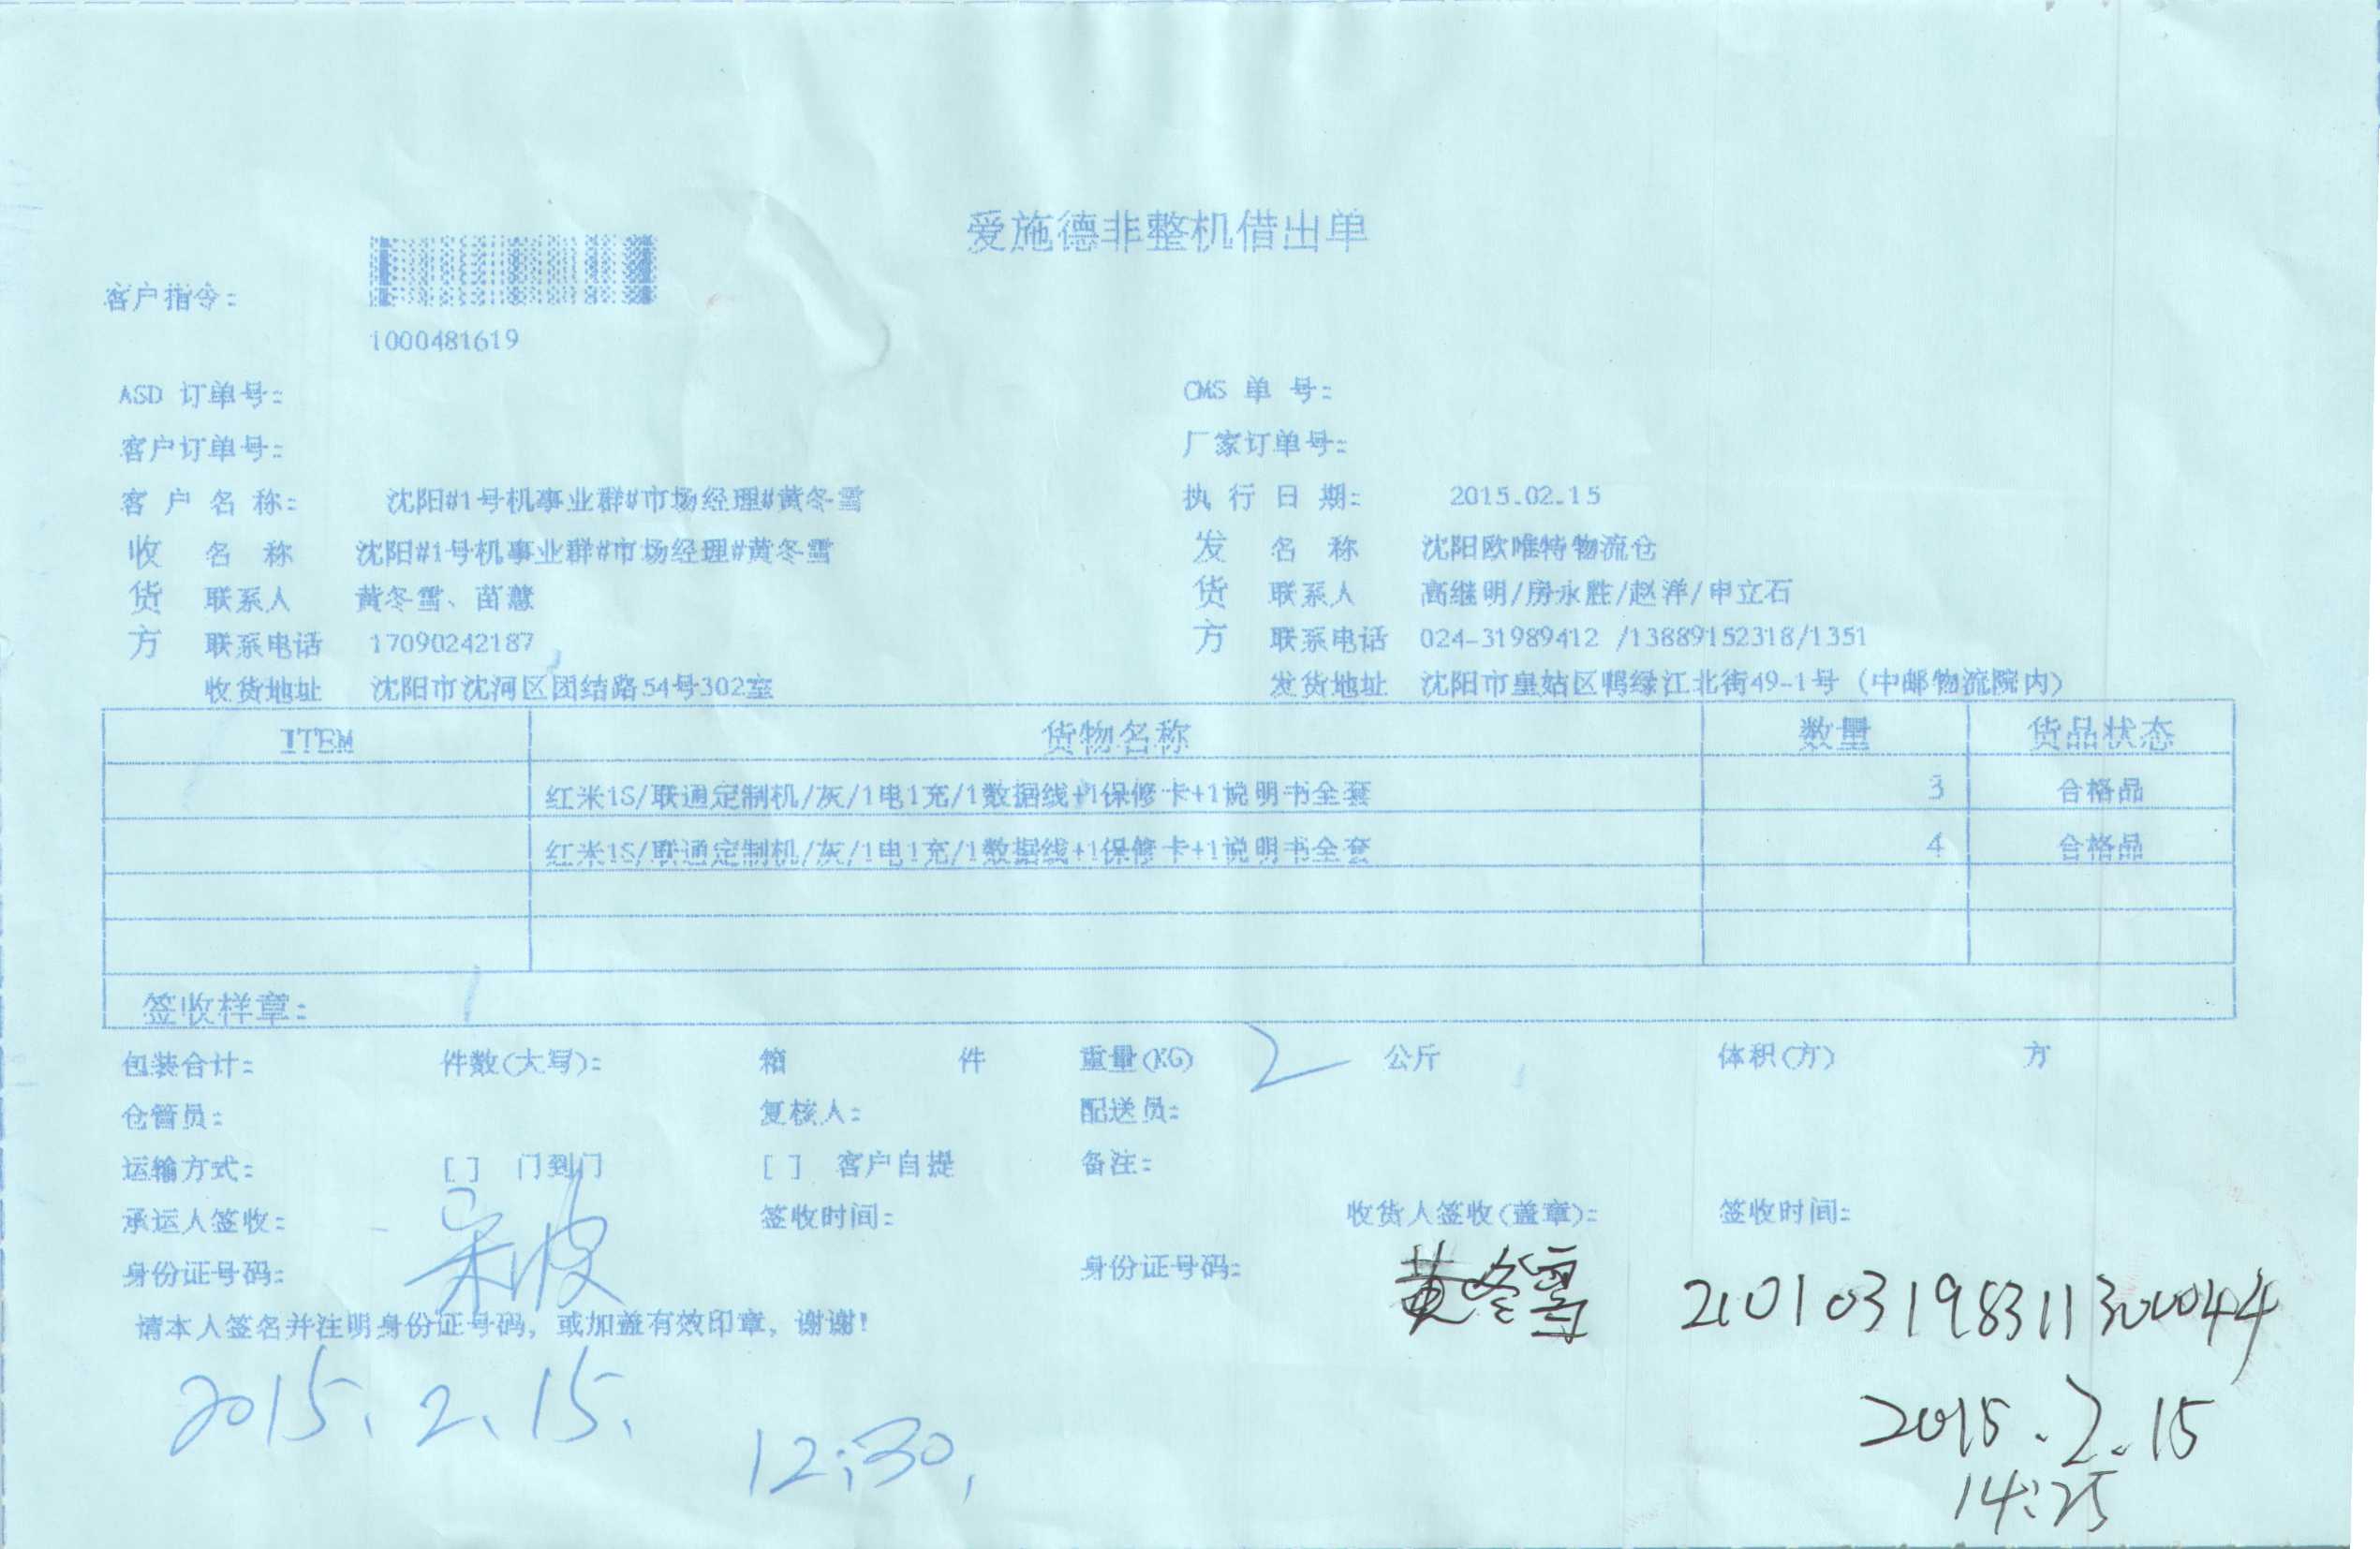 爱施德非整机借出单
客户指令：
1000481619
ASD 订单号： CMS 单 号：
客户订单号： 厂家订单号：
客 户 名 称： 沈阳#1号机事业群#市场经理#黄冬雪 执 行 日 期： 2015.02.15
收 名 称 沈阳#1号机事业群#市场经理#黄冬雪 发 名 称 沈阳欧唯特物流仓
货 联系人 黄冬雪、苗慧 货 联系人 高继明/房永胜/赵洋/申立石
方 联系电话 17090242187 方 联系电话 024-31989412 /13889152318/1351
收货地址 沈阳市沈河区团结路54号302室 发货地址 沈阳市皇姑区鸭绿江北街49-1号（中邮物流院内）
ITEM 货物名称 数量 货品状态
红米1S/联通定制机/灰/1电1充/1数据线+1保修卡+1说明书全套 3 合格品
红米1S/联通定制机/灰/1电1充/1数据线+1保修卡+1说明书全套 4 合格品
签收样章：
包装合计： 件数(大写)： 箱 件 重量(KG) 2 公斤 体积(方) 方
仓管员： 复核人： 配送员：
运输方式： [ ] 门到门 [ ] 客户自提 备注：
承运人签收： 签收时间： 收货人签收(盖章)： 签收时间：
身份证号码： 宋波 身份证号码： 黄冬雪 210103198311300044
请本人签名并注明身份证号码，或加盖有效印章，谢谢！
2015.2.15. 2015.2.15
12:30. 14:25